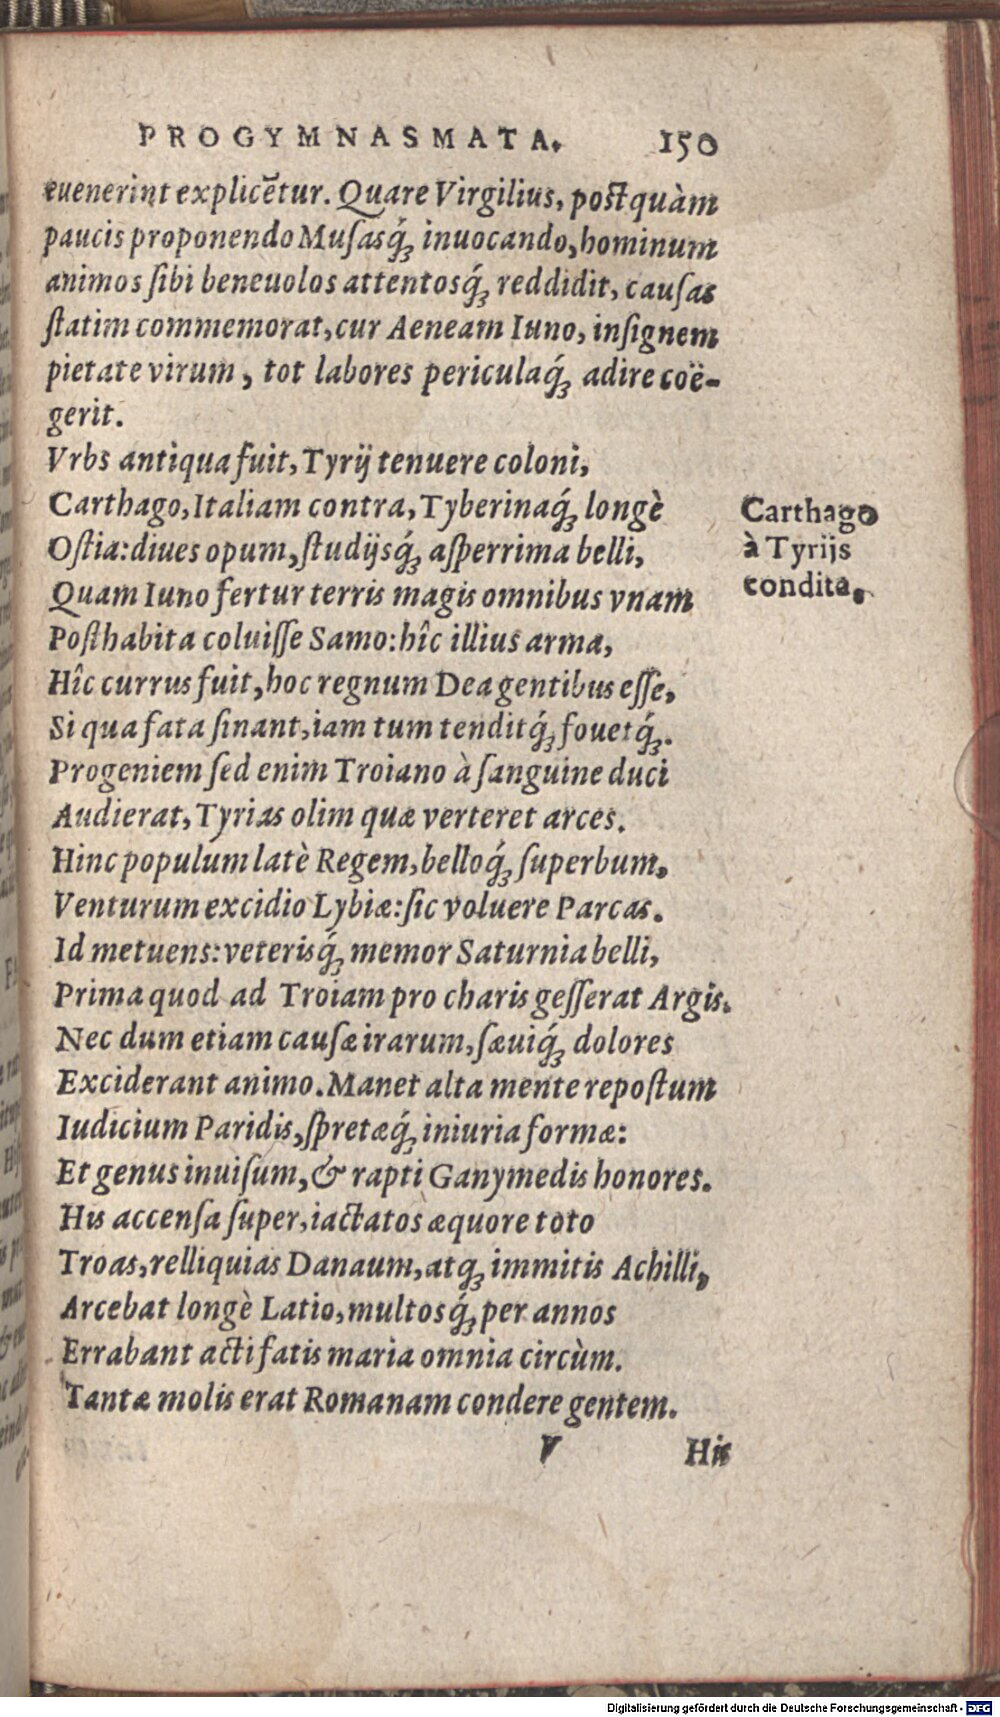 PROGYMNASMATA. 150
euenerint explicẽtur. Quare Virgilius, postquàm
paucis proponendo Musasq́; inuocando, hominum
animos sibi beneuolos attentosq́; reddidit, causas
statim commemorat, cur Aeneam Iuno, insignem
pietate virum, tot labores periculaq́; adire coë-
gerit.
Vrbs antiqua fuit, Tyrij tenuere coloni,
Carthago, Italiam contra, Tyberinaq́; longè
Ostia: diues opum, studijsq́; asperrima belli,
Quam Iuno fertur terris magis omnibus vnam
Posthabita coluisse Samo: hîc illius arma,
Hîc currus fuit, hoc regnum Dea gentibus esse,
Si qua fata sinant, iam tum tenditq́; fouetq́;.
Progeniem sed enim Troiano à sanguine duci
Audierat, Tyrias olim quæ verteret arces.
Hinc populum latè Regem, belloq́; superbum,
Venturum excidio Lybiæ: sic voluere Parcas.
Id metuens: veterisq́; memor Saturnia belli,
Prima quod ad Troiam pro charis gesserat Argis.
Nec dum etiam causæ irarum, sæuiq́; dolores
Exciderant animo. Manet alta mente repostum
Iudicium Paridis, spretæq́; iniuria formæ:
Et genus inuisum, & rapti Ganymedis honores.
His accensa super, iactatos æquore toto
Troas, relliquias Danaum, atq; immitis Achilli,
Arcebat longè Latio, multosq́; per annos
Errabant acti fatis maria omnia circùm.
Tantæ molis erat Romanam condere gentem.
V His
Carthago
à Tyrijs
condita.
Digitalisierung gefördert durch die Deutsche Forschungsgemeinschaft - DFG